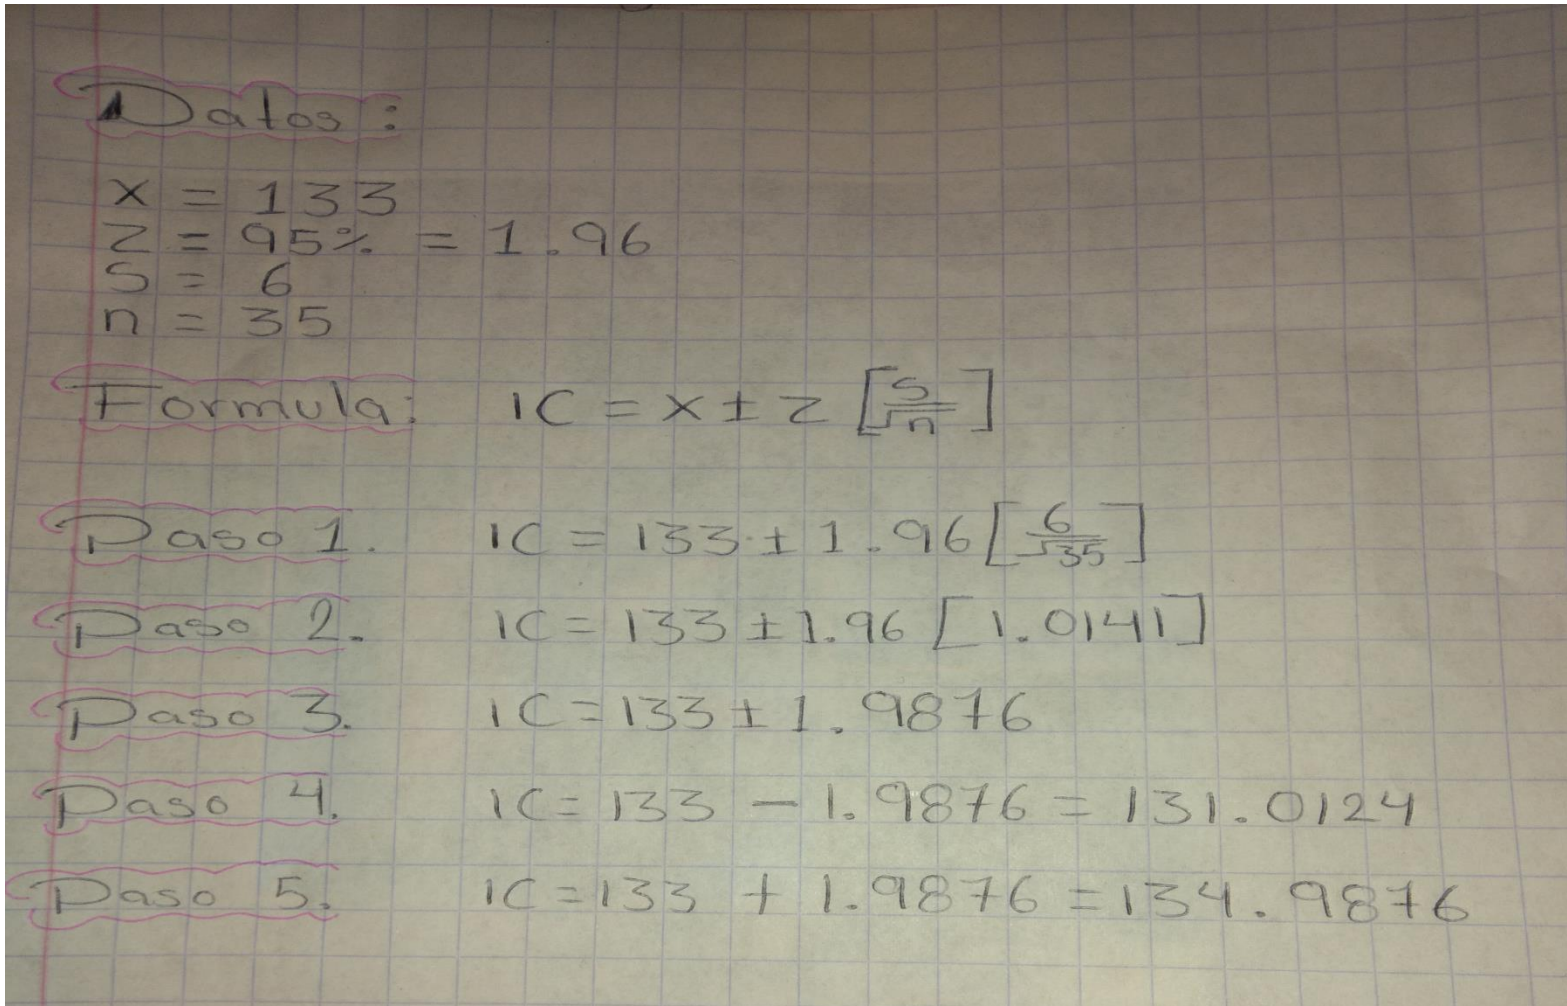 Datos:
x = 133
z = 95% = 1.96
S = 6
n = 35
Formula: IC = x ± z [S/√n]
Paso 1. IC = 133 ± 1.96 [6/√35]
Paso 2. IC = 133 ± 1.96 [1.0141]
Paso 3. IC = 133 ± 1.9876
Paso 4. IC = 133 - 1.9876 = 131.0124
Paso 5. IC = 133 + 1.9876 = 134.9876